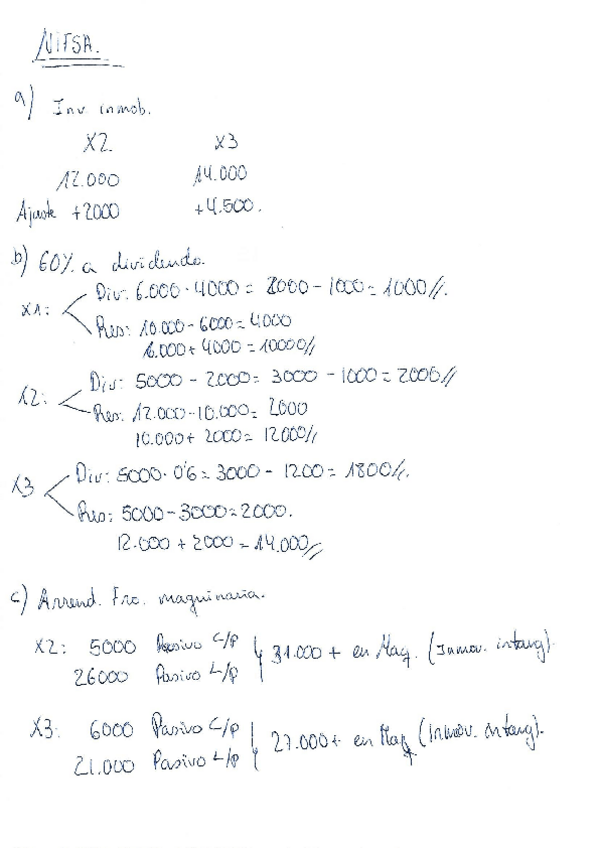 NIFSA.
a) Inv. inmob.
X2 X3
12.000 14.000
Ajuste +2000 +4.500.
b) 60% a dividendo.
X1: Div: 6.000 - 4000 = 2000 - 1000 = 1000//.
Res: 10.000 - 6000 = 4000
6.000 + 4000 = 10000//
X2: Div: 5000 - 2000 = 3000 - 1000 = 2000//
Res: 12.000 - 10.000 = 2000
10.000 + 2000 = 12000//
X3 Div: 5000 · 0'6 = 3000 - 1200 = 1800//.
Res: 5000 - 3000 = 2000.
12.000 + 2000 = 14.000//
c) Arrend. Fro. maquinaria.
X2: 5000 Pasivo C/P
26000 Pasivo L/P
31.000 + en Maq. (Inmov. intang).
X3: 6000 Pasivo C/P
21.000 Pasivo L/P
27.000 + en Maq (Inmov. intang).